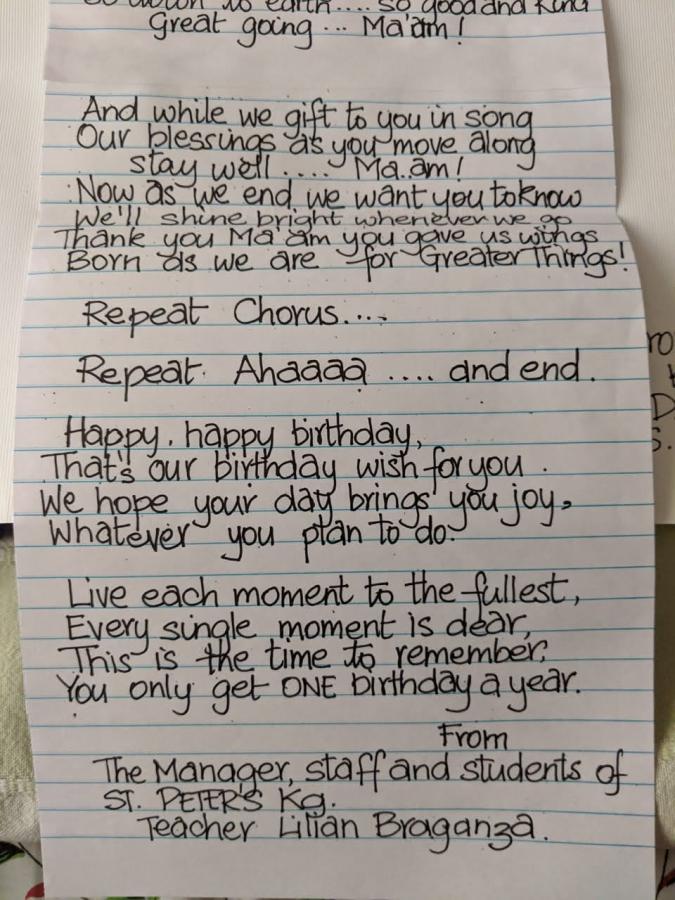 so down to earth.... so good and kind
Great going ... Ma'am!
And while we gift to you in song
Our blessings as you move along
stay well .... Ma.am!
Now as we end, we want you to know
We'll shine bright whenever we go
Thank you Ma'am you gave us wings
Born as we are for Greater Things!
Repeat Chorus....
Repeat. Ahaaaa .... and end.
Happy, happy birthday,
That's our birthday wish for you.
We hope your day brings you joy,
Whatever you plan to do.
Live each moment to the fullest,
Every single moment is dear,
This is the time to remember,
You only get ONE birthday a year.
From
The Manager, staff and students of
ST. PETER'S Kg.
Teacher Lilian Braganza.